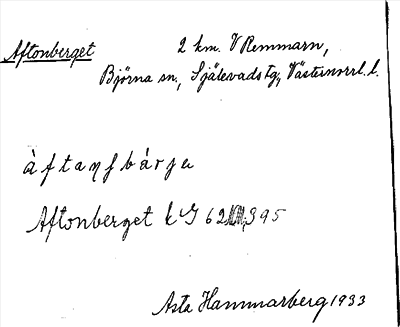 Aftonberget 2 km. V Remmarn,
Björna sn, Själevads tg, Västernorrl. l.
àftaŋfbárjɐ
Aftonberget k G 62 S95
Asta Hammarberg 1933